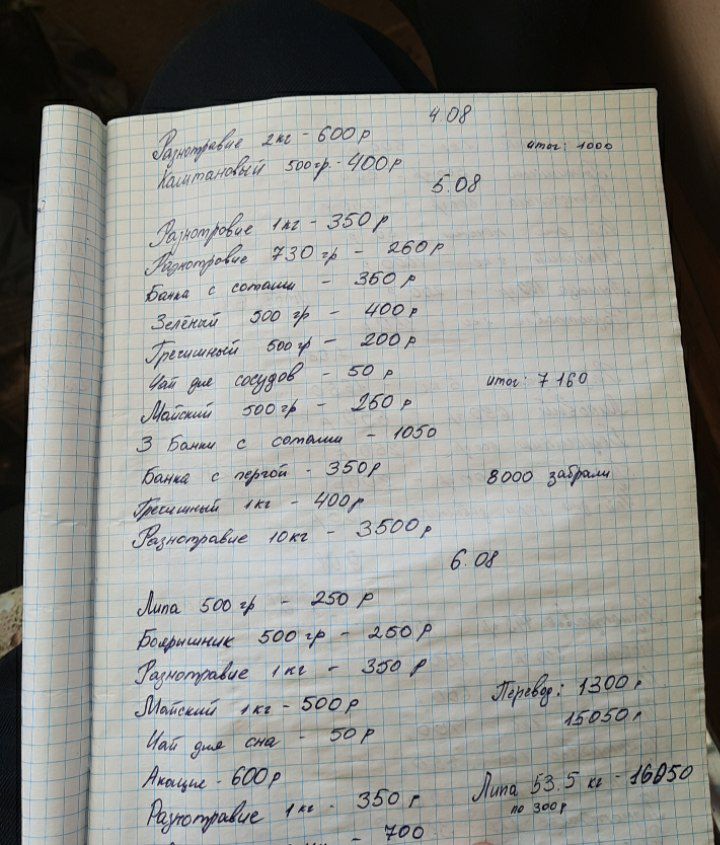 4.08
Разнотравие 2кг - 600р
итог: 1000
Каштановый 500гр. - 400р
5.08
Разнотровие 1кг - 350р
Разнотровие 730 гр - 260р
Банка с сотами - 350р
Зелёный 500 гр - 400р
Гречишный 500гр - 200р
Чай для сосудов - 50р
итог: 7160
Майский 500гр - 250р
3 Банки с сотами - 1050
Банка с пергой - 350р
8000 забрали
Гречишный 1кг - 400р
Разнотравие 10кг - 3500р
6.08
Липа 500гр - 250р
Бояришник 500гр - 250р
Разнотравие 1кг - 350р
Майский 1кг - 500р
Перевод: 1300р
15050р
Чай для сна - 50р
Акация - 600р
Липа 53.5 кг - 16050
по 300р
Разнотравие 1кг - 350р
- 700